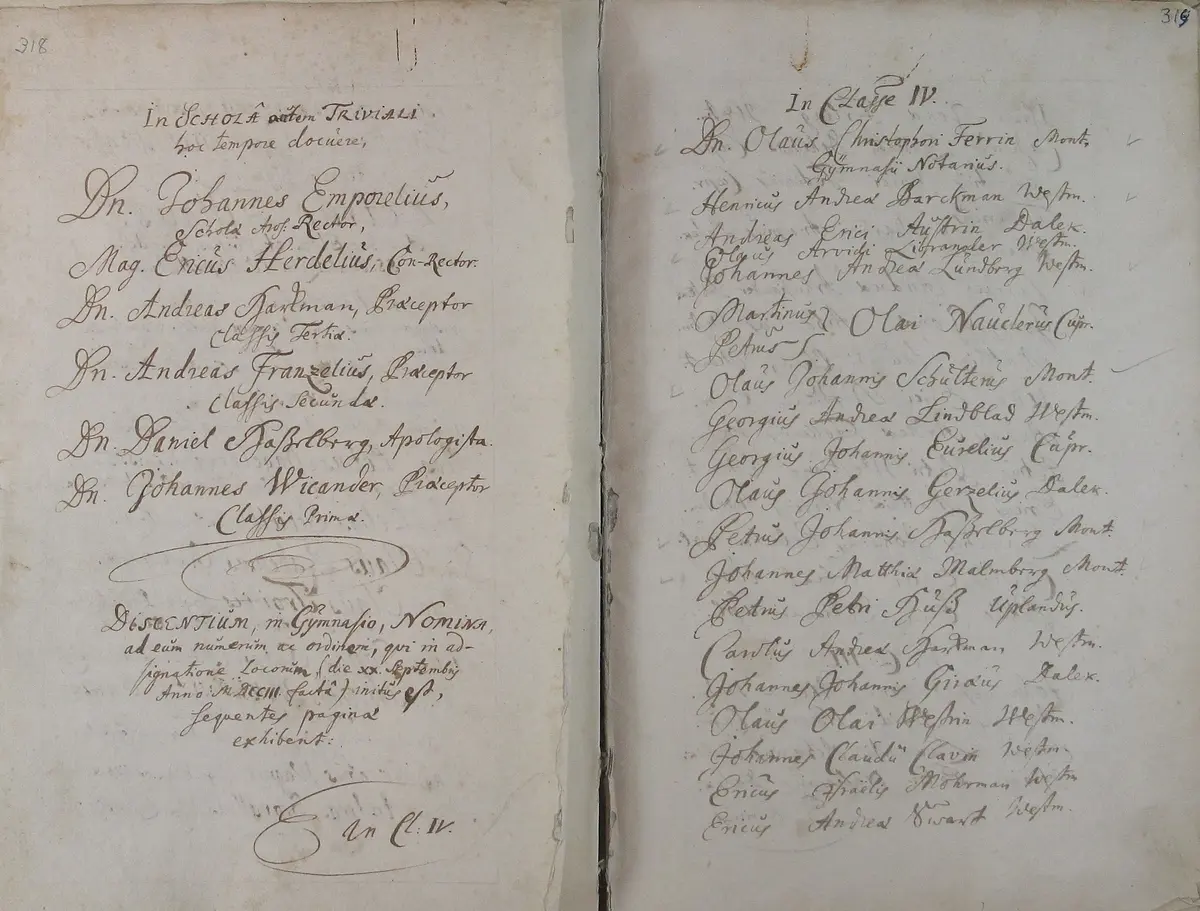 318
In SCHOLÂ autem TRIVIALI
hoc tempore docuere,
Dn. Johannes Emporelius,
Scholæ Rector,
Mag. Ericus Herdelius, Con-Rector.
Dn. Andreas Barkman, Præceptor
Classis Tertiæ.
Dn. Andreas Franzelius, Præceptor
Classis Secundæ.
Dn. Daniel Haßelberg, Apologista.
Dn. Johannes Wicander, Præceptor
Classis Primæ.
DISCENTIUM, in Gÿmnasio, NOMINA,
ad eum numerum ac ordinem, qvi in ad-
signatione Locorum (die xx. Septembris
Anno MDCCIII factâ) initus est,
sequentes paginæ
exhibent:
In Cl: IV.
319
In Classe IV.
Dn. Olaus Christophori Ferrin Mont.
Gÿmnasii Notarius.
Henricus Andreæ Barckman Westm.
Andreas Erici Austrin Dalek.
Olaus Arvidi Westm.
Johannes Andreæ Lundberg Westm.
Martinus } Olai Nauclerus Cupr.
Petrus
Olaus Johannis Schultenus Mont.
Georgius Andreæ Lindblad Westm.
Georgius Johannis Eurelius Cupr.
Olaus Johannis Gerzelius Dalek.
Petrus Johannis Haßelberg Mont.
Johannes Matthiæ Malmberg Mont.
Petrus Petri Huß Uplandus.
Carolus Andreæ Barkman Westm.
Johannes Johannis Giræus Dalek.
Olaus Olai Westrin Westm.
Johannes Claudii Clavin Westm.
Ericus Israëlis Mohrman Westm
Ericus Andreæ Swart Westm.